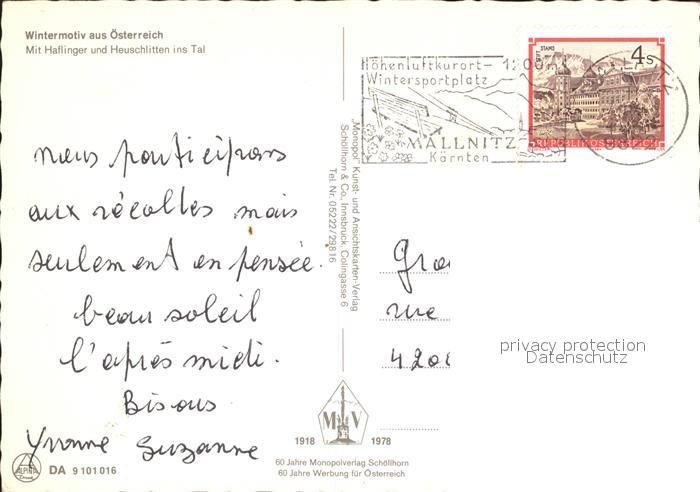 Wintermotiv aus Österreich
Mit Haflinger und Heuschlitten ins Tal
nous participons
aux récoltes mais
seulement en pensée.
beau soleil
l'après midi.
Bisous
Yvonne Suzanne
ALPINA
DA 9 101 016
„Monopol" Kunst- und Ansichtskarten-Verlag
Schöllhorn & Co., Innsbruck, Colingasse 6
Tel. Nr. 05222/29816
Höhenluftkurort – 1200m
Wintersportplatz
MALLNITZ
Kärnten
STIFT STAMS
4 S
REPUBLIK ÖSTERREICH
rue
privacy protection
Datenschutz
M V
1918 1978
60 Jahre Monopolverlag Schöllhorn
60 Jahre Werbung für Österreich